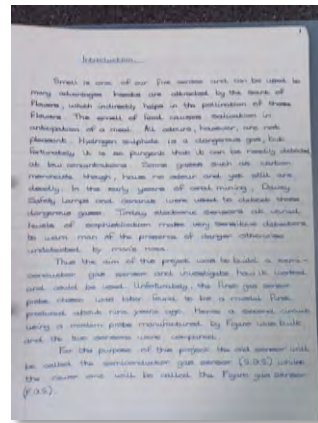 1
Introduction
Smell is one of our five senses and can be used to
many advantages. Insects are attracted by the scent of
flowers, which indirectly helps in the pollination of these
flowers. The smell of food causes salivation in
anticipation of a meal. All odours, however, are not
pleasant. Hydrogen sulphide is a dangerous gas, but
fortunately it is so pungent that it can be readily detected
at low concentrations. Some gases such as carbon
monoxide though, have no odour and yet still are
deadly. In the early years of coal mining, Davey
Safety Lamps and canaries were used to detect these
dangerous gases. Today electronic sensors at varied
levels of sophistication make very sensitive detectors
to warn man of the presence of danger otherwise
undetected by man's nose.
Thus the aim of this project was to build a semi-
conductor gas sensor and investigate how it worked
and could be used. Unfortunately, the first gas sensor
probe chosen was later found to be a model first
produced about nine years ago. Hence a second circuit
using a modern probe manufactured by Figaro was built
and the two sensors were compared.
For the purpose of this project the old sensor will
be called the semiconductor gas sensor (S.G.S) whilst
the newer one will be called the Figaro gas sensor
(F.G.S).